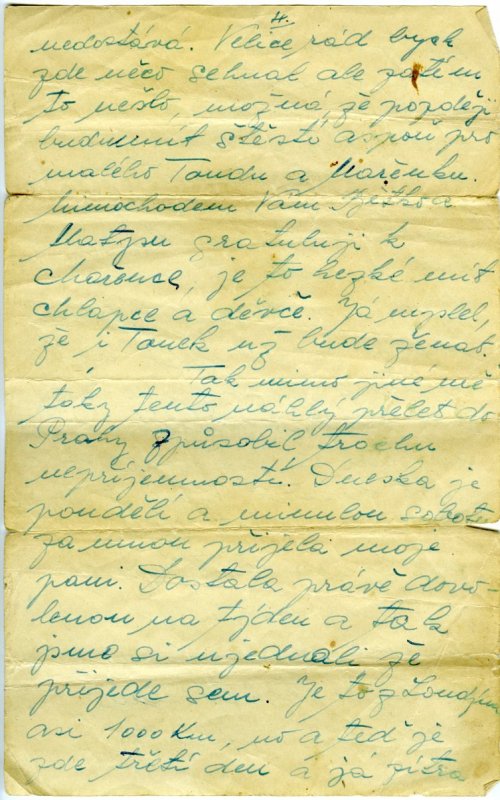 4.
nedostává. Velice rád bych
zde něco sehnal ale zatím
to nešlo, možná, že později
budu mít štěstí aspoň pro
malého Tondu a Mařenku.
Mimochodem Vám Jetko a
Matysu gratuluji k
, je to hezké mít
chlapce a děvče. Já myslel,
že i Tonek už bude ženat.
Tak mimo jiné mě
taky tento náhlý přelet do
Prahy způsobil trochu
nepříjemností. Dneska je
pondělí a minulou sobotu
za mnou přijela moje
paní. Dostala právě dovo-
lenou na týden a tak
jsme si ujednali že
přijede sem. Je to z Londýna
asi 1000 Km, no a teď je
zde třetí den a já zítra